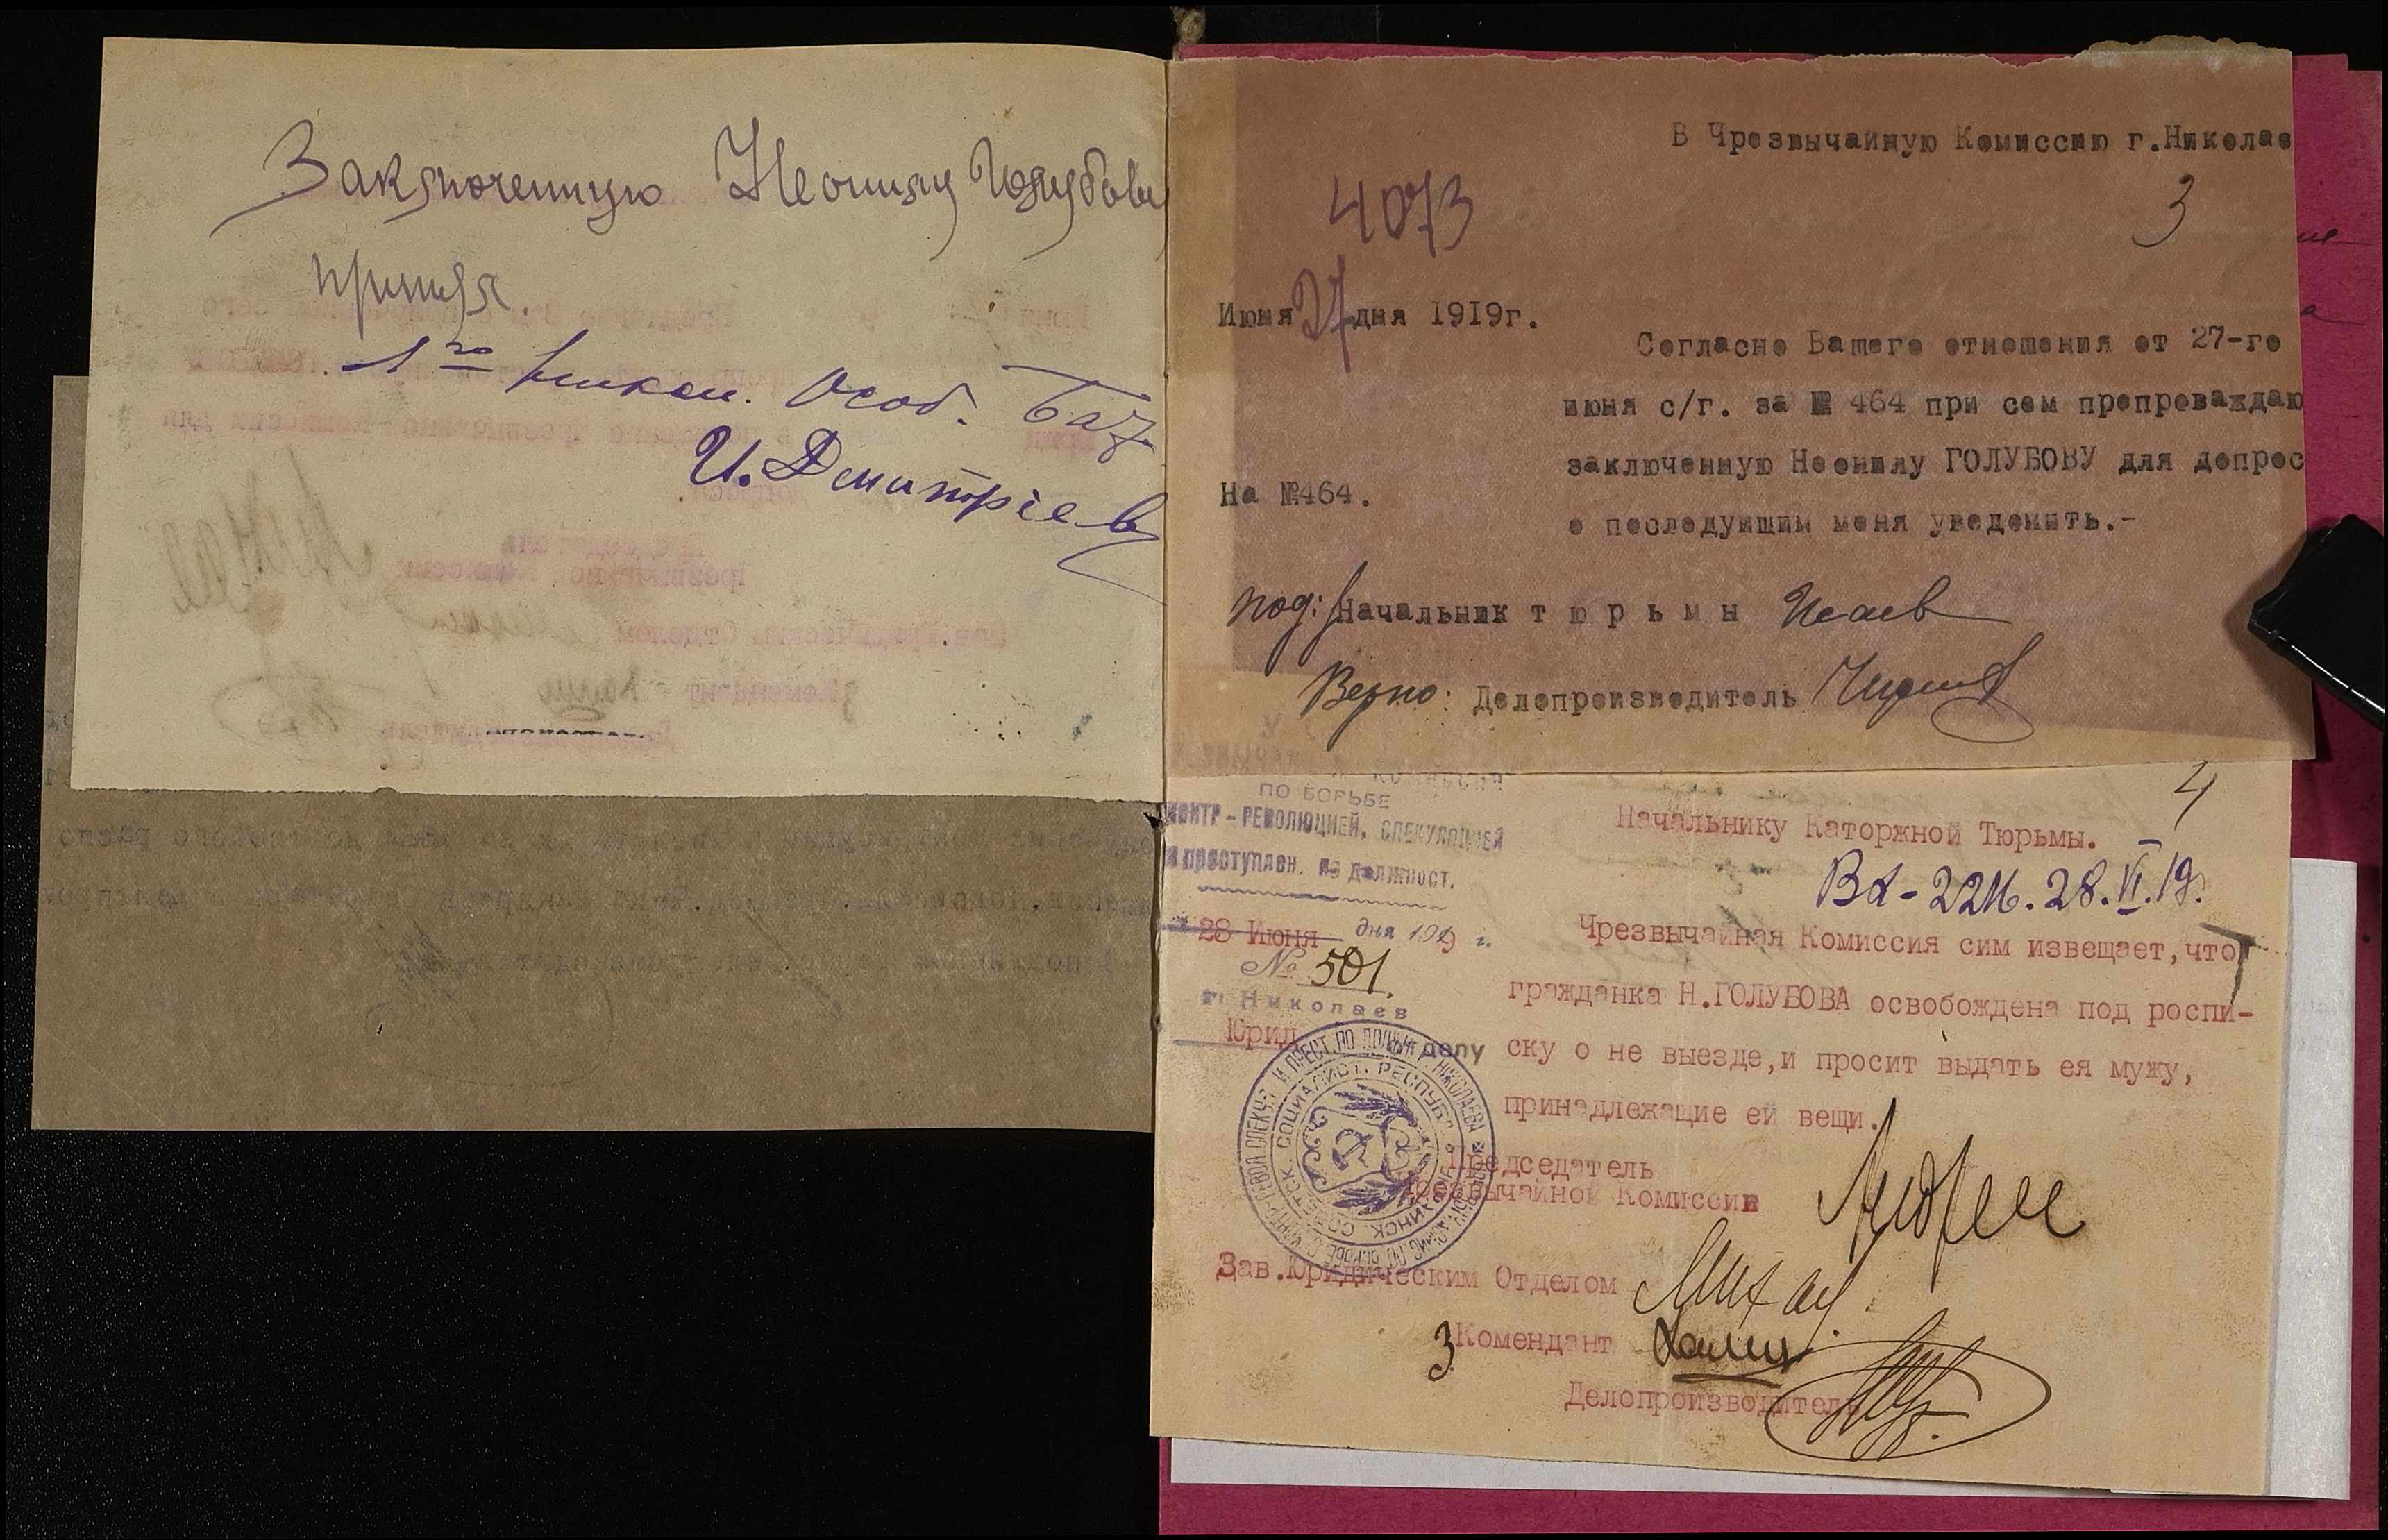 Заключенную Неонилу Голубову
принял.
1го Никол. Особ. Бат.
И. Дмитріев
В Чрезвычайную Комиссию г.Николае
4073
3
Июня 27 дня 1919г.
Согласно Вашего отношения от 27-го
июня с/г. за № 464 при сем препровождаю
заключенную Неонилу ГОЛУБОВУ для допрос
На №464.
о последующим меня уведомить.-
под: Начальник тюрьмы Исаев
Верно: Делопроизводитель
4
КОМИССИЯ
ПО БОРЬБЕ
КОНТР-РЕВОЛЮЦИЕЙ, СПЕКУЛЯЦИЕЙ
и преступлен. по должност.
28 Июня дня 1919 г.
№ 501.
г. Николаев
Юрид
делу
Начальнику Каторжной Тюрьмы.
Вх-2216. 28.VI.19г.
Чрезвычайная Комиссия сим извещает, что
гражданка Н.ГОЛУБОВА освобождена под роспи-
ску о не выезде,и просит выдать ея мужу,
принадлежащие ей вещи.
Председатель
Чрезвычайной Комиссии
Зав.Юридическим Отделом
З Комендант
Делопроизводитель